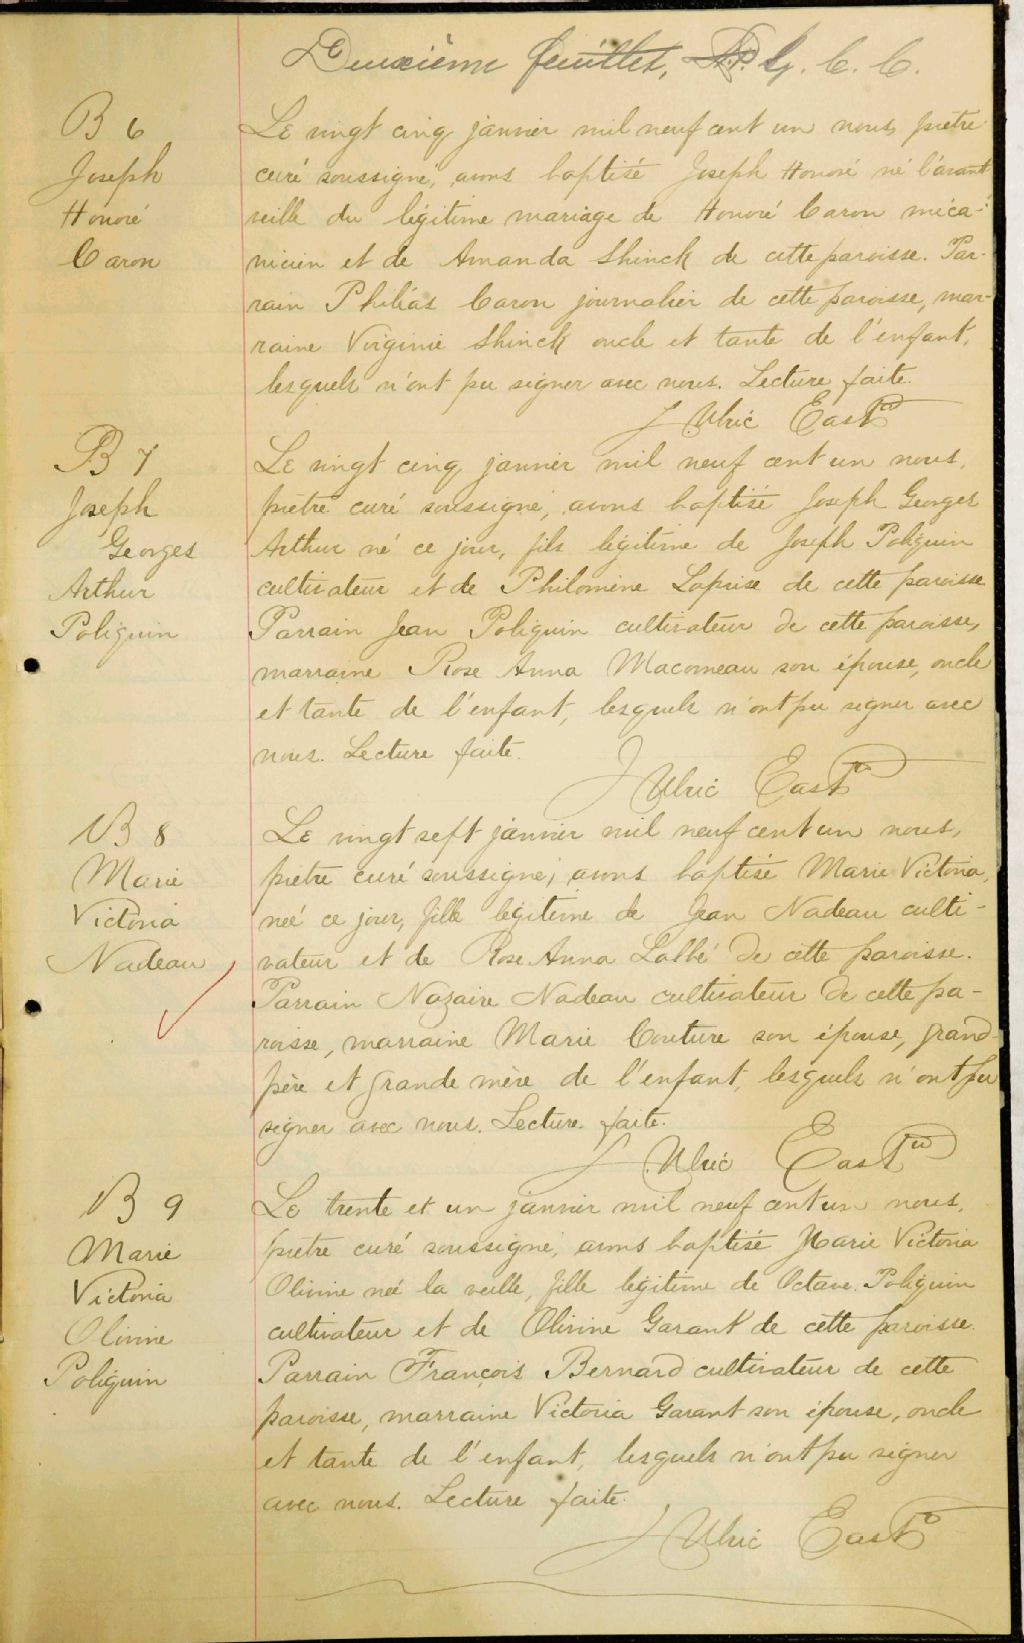 Deuxième feuillet, G. C. C.
B 6
Joseph
Honoré
Caron
Le vingt cinq janvier mil neuf cent un nous, prêtre
curé soussigné, avons baptisé Joseph Honoré né l'avant
veille du légitime mariage de Honoré Caron méca-
nicien et de Amanda Shinck de cette paroisse. Par-
rain Philias Caron journalier de cette paroisse, mar-
raine Virginie Shinck oncle et tante de l'enfant,
lesquels n'ont pu signer avec nous. Lecture faite.
J Ulric East
B 7
Joseph
Georges
Arthur
Poliquin
Le vingt cinq janvier mil neuf cent un nous,
prêtre curé soussigné, avons baptisé Joseph Georges
Arthur né ce jour, fils légitime de Joseph Poliquin
cultivateur et de Philomène Laprise de cette paroisse
Parrain Jean Poliquin cultivateur de cette paroisse,
marraine Rose Anna Macomeau son épouse, oncle
et tante de l'enfant, lesquels n'ont pu signer avec
nous. Lecture faite.
J Ulric East
B 8
Marie
Victoria
Nadeau
Le vingt sept janvier mil neuf cent un nous,
prêtre curé soussigné, avons baptisé Marie Victoria,
née ce jour, fille légitime de Jean Nadeau culti-
vateur et de Rose Anna Labbé de cette paroisse.
Parrain Nazaire Nadeau cultivateur de cette pa-
roisse, marraine Marie Couture son épouse, grand-
père et grande mère de l'enfant, lesquels n'ont pu
signer avec nous. Lecture faite.
J. Ulric East
B 9
Marie
Victoria
Olivine
Poliquin
Le trente et un janvier mil neuf cent un nous,
prêtre curé soussigné, avons baptisé Marie Victoria
Olivine née la veille, fille légitime de Octave Poliquin
cultivateur et de Olivine Garant de cette paroisse.
Parrain François Bernard cultivateur de cette
paroisse, marraine Victoria Garant son épouse, oncle
et tante de l'enfant, lesquels n'ont pu signer
avec nous. Lecture faite.
J Ulric East